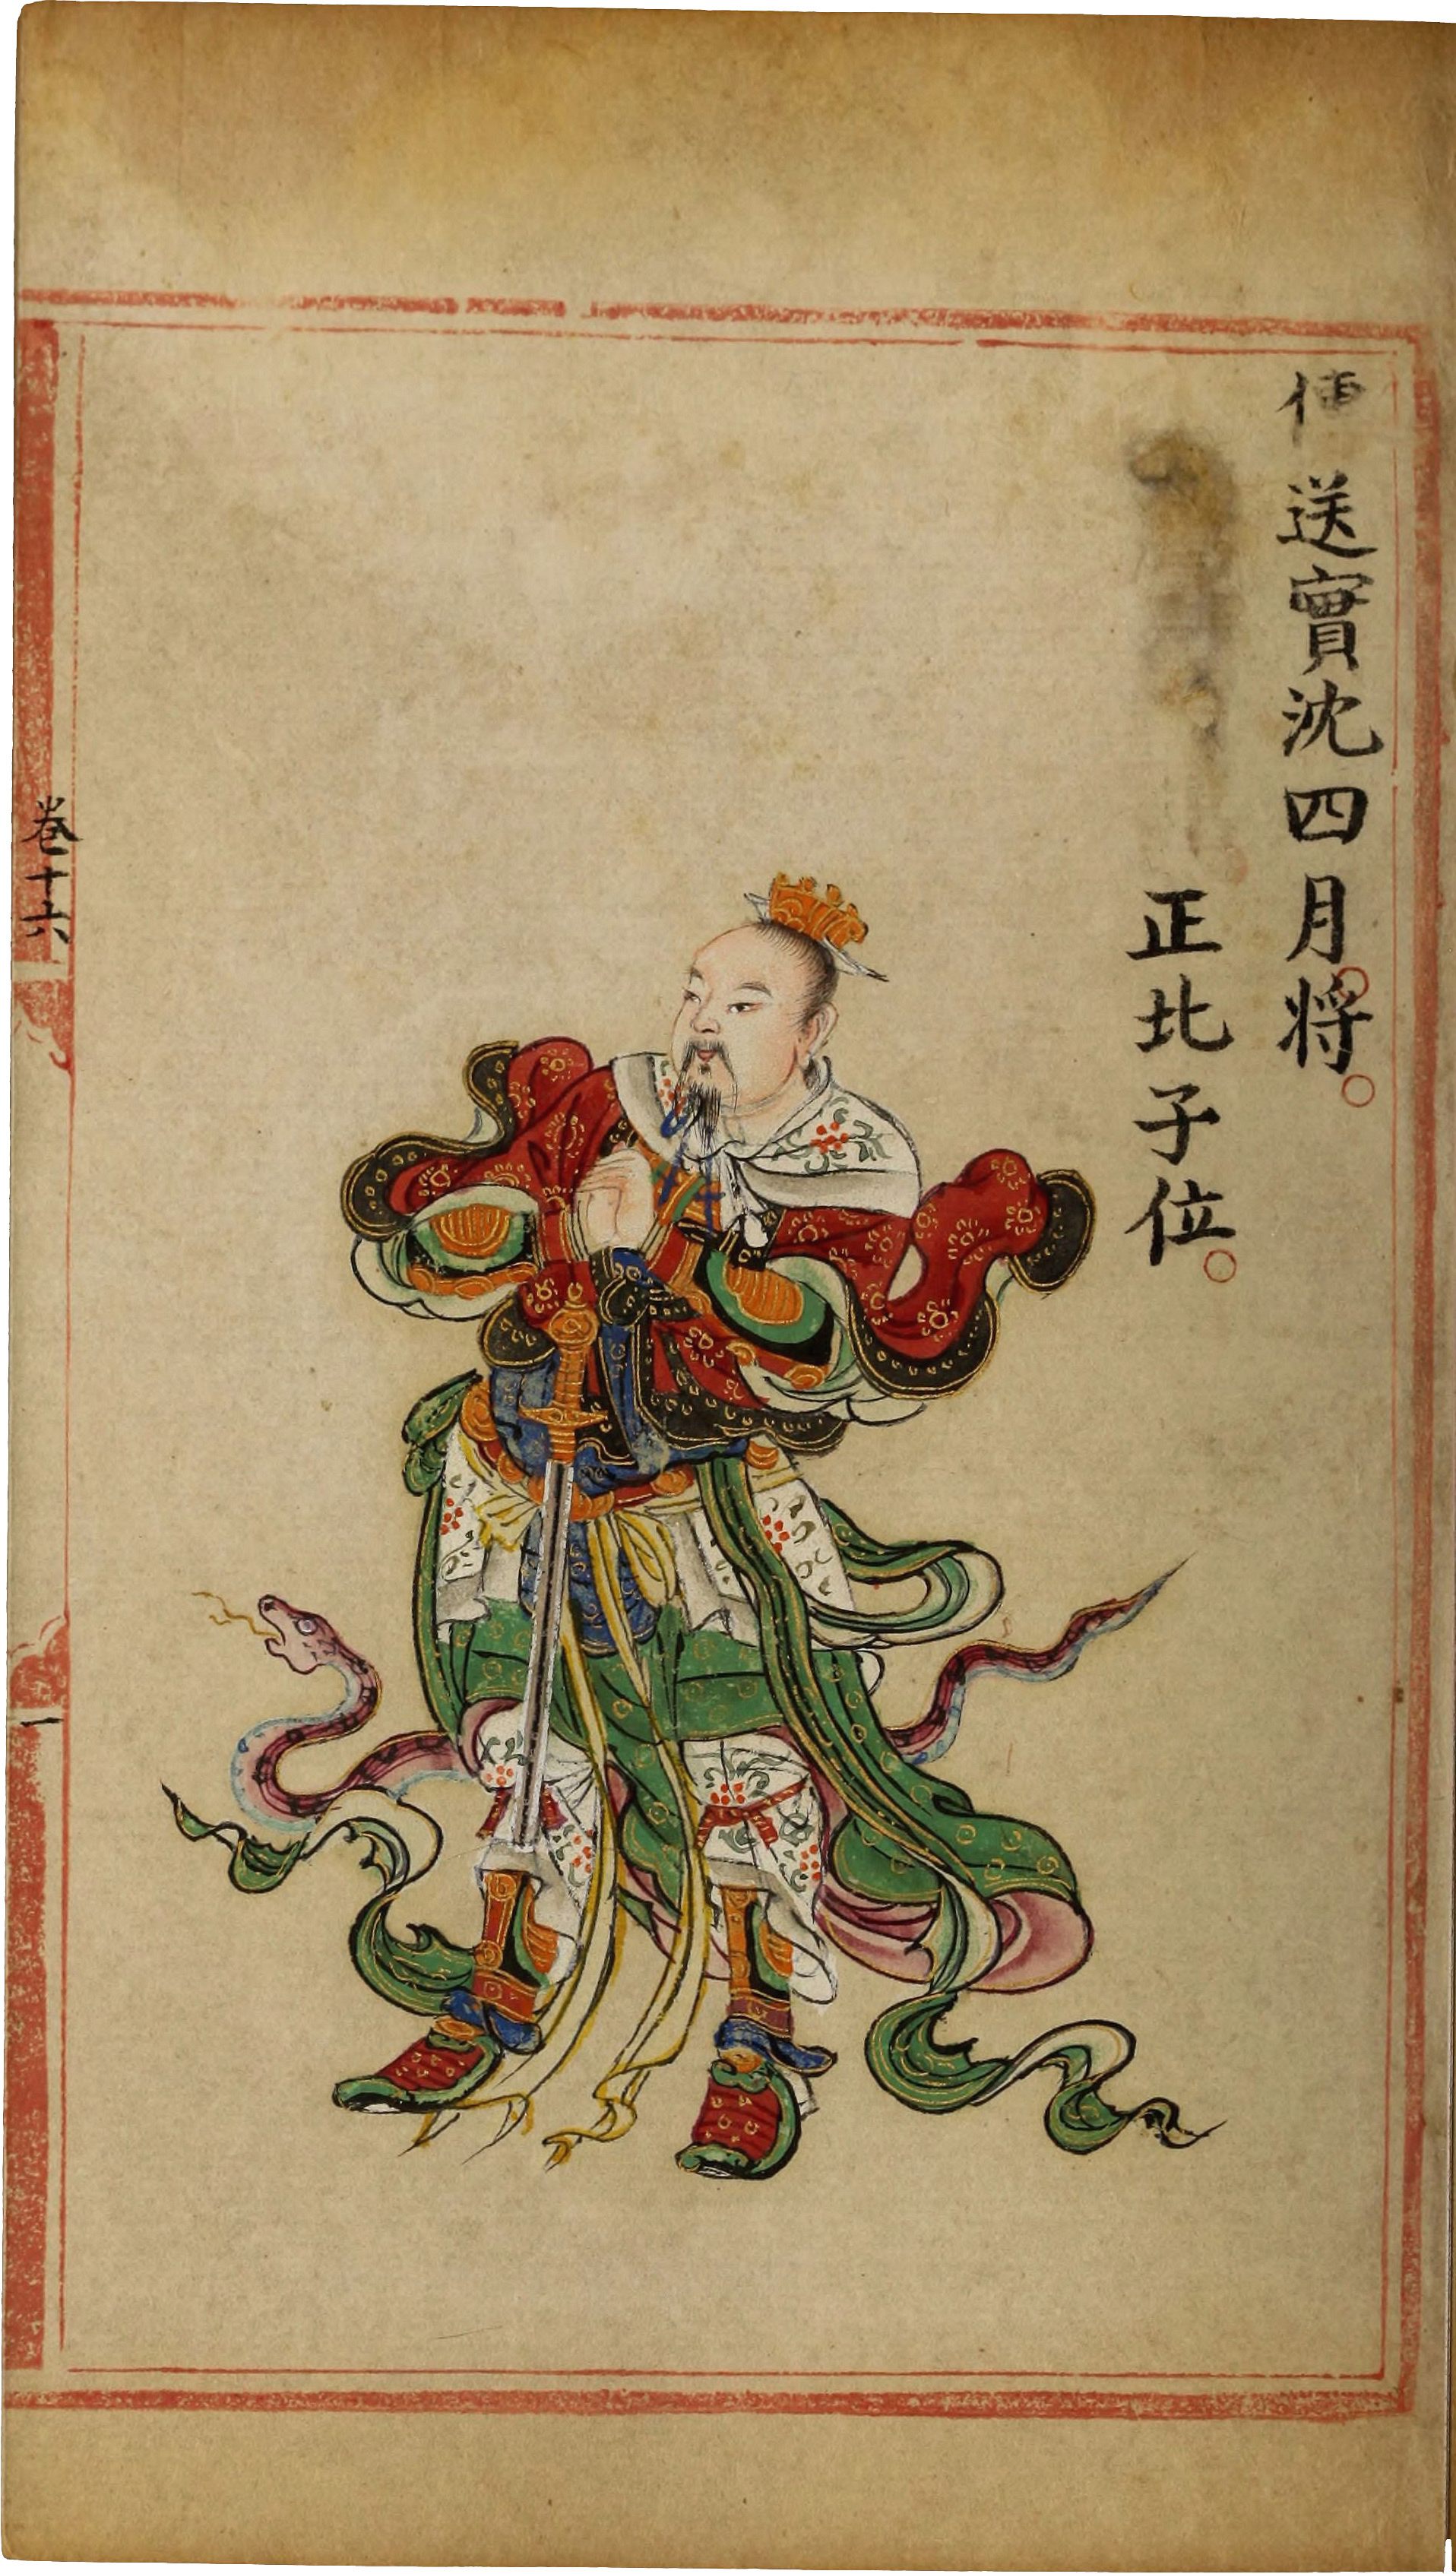 傳送實沈四月将
正北子位
卷十六
一